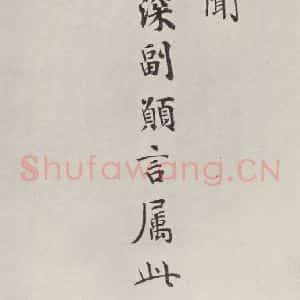 聞
深副願言属此
Shufawang.CN